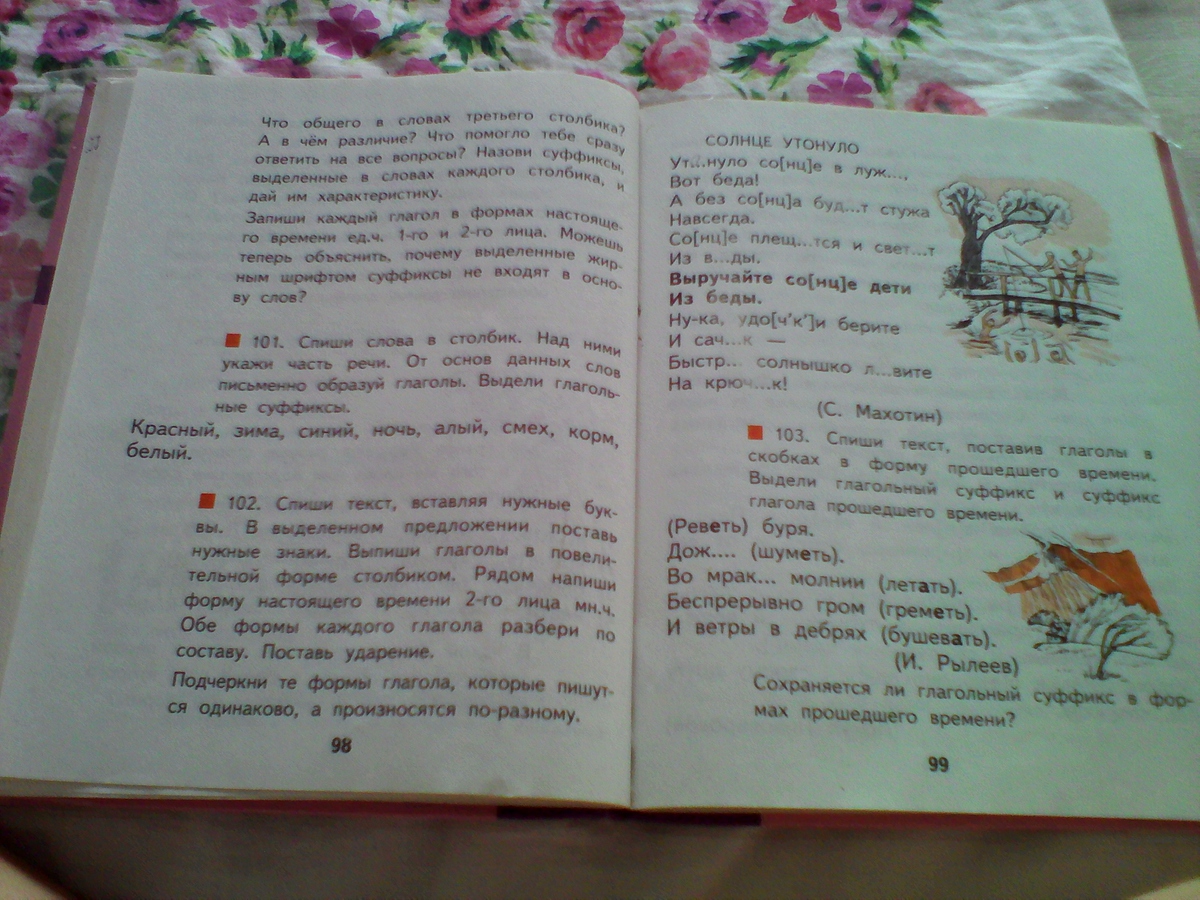 Что общего в словах третьего столбика?
А в чём различие? Что помогло тебе сразу
ответить на все вопросы? Назови суффиксы,
выделенные в словах каждого столбика, и
дай им характеристику.
Запиши каждый глагол в формах настояще-
го времени ед.ч. 1-го и 2-го лица. Можешь
теперь объяснить, почему выделенные жир-
ным шрифтом суффиксы не входят в осно-
ву слов?
101. Спиши слова в столбик. Над ними
укажи часть речи. От основ данных слов
письменно образуй глаголы. Выдели глаголь-
ные суффиксы.
Красный, зима, синий, ночь, алый, смех, корм,
белый.
102. Спиши текст, вставляя нужные бук-
вы. В выделенном предложении поставь
нужные знаки. Выпиши глаголы в повели-
тельной форме столбиком. Рядом напиши
форму настоящего времени 2-го лица мн.ч.
Обе формы каждого глагола разбери по
составу. Поставь ударение.
Подчеркни те формы глагола, которые пишут-
ся одинаково, а произносятся по-разному.
98
СОЛНЦЕ УТОНУЛО
Ут...нуло со[нц]е в луж...,
Вот беда!
А без со[нц]а буд...т стужа
Навсегда.
Со[нц]е плещ...тся и свет...т
Из в...ды.
Выручайте со[нц]е дети
Из беды.
Ну-ка, удо[ч'к']и берите
И сач...к —
Быстр... солнышко л...вите
На крюч...к!
(С. Махотин)
103. Спиши текст, поставив глаголы в
скобках в форму прошедшего времени.
Выдели глагольный суффикс и суффикс
глагола прошедшего времени.
(Реветь) буря.
Дож.... (шуметь).
Во мрак... молнии (летать).
Беспрерывно гром (греметь).
И ветры в дебрях (бушевать).
(И. Рылеев)
Сохраняется ли глагольный суффикс в фор-
мах прошедшего времени?
99